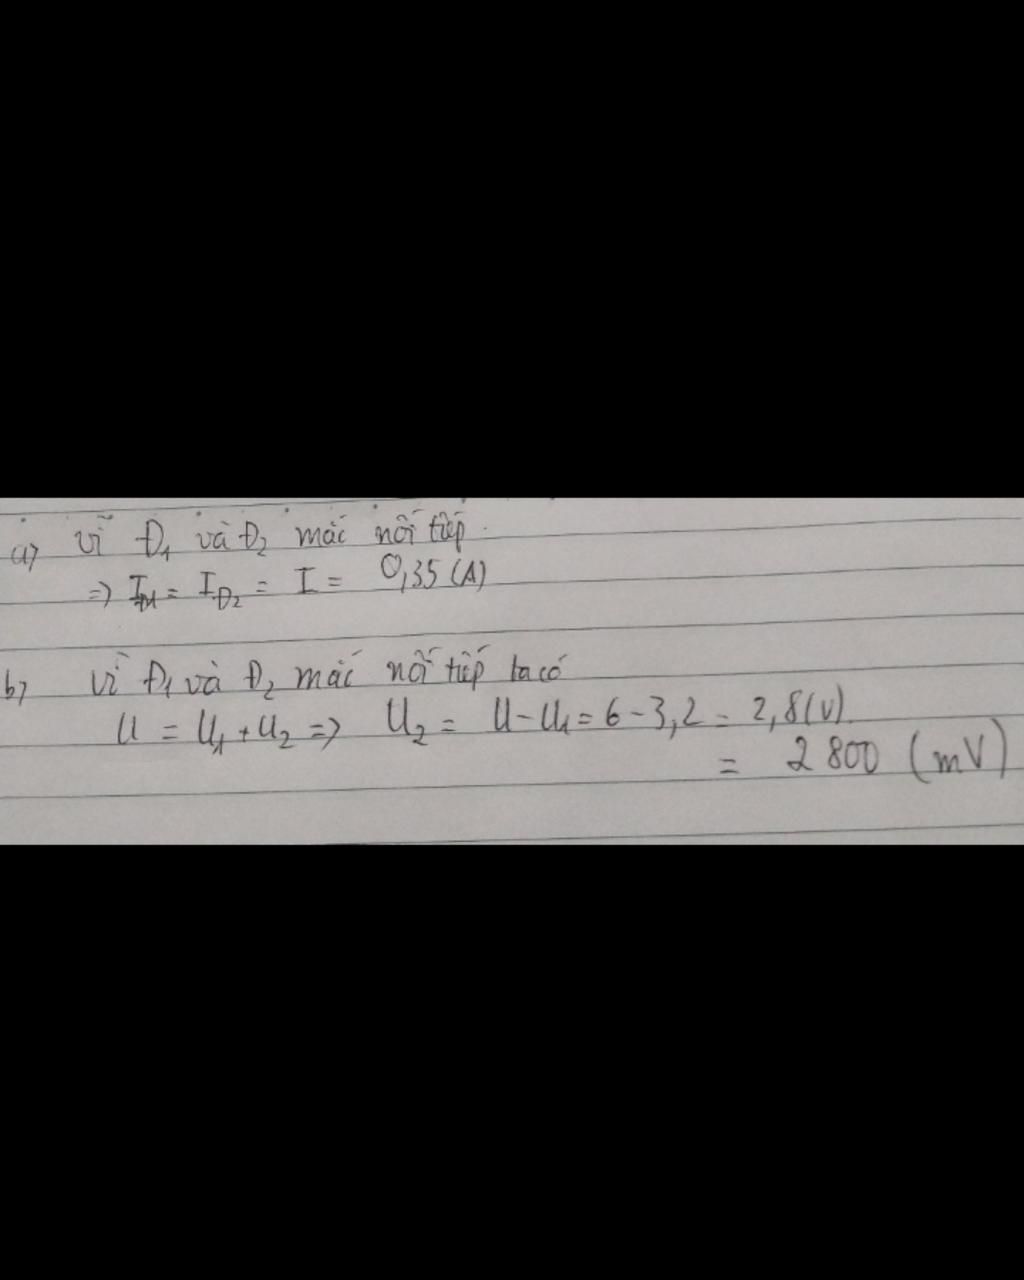 a) Vì Đ₁ và Đ₂ mắc nối tiếp.
=> I_Đ₁ = I_Đ₂ = I = 0,35 (A)
b) Vì Đ₁ và Đ₂ mắc nối tiếp ta có
U = U₁ + U₂ => U₂ = U - U₁ = 6 - 3,2 = 2,8 (V).
= 2 800 (mV)